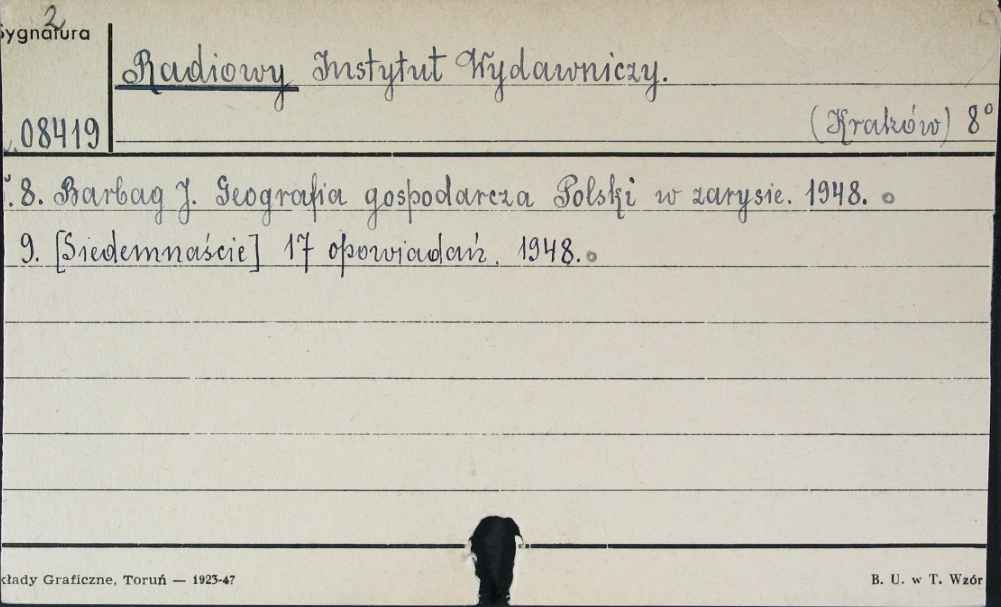 2
Sygnatura
Radiowy Instytut Wydawniczy.
(Kraków) 8°
08419
8. Barbag J. Geografia gospodarcza Polski w zarysie. 1948.
9. [Siedemnaście] 17 opowiadań. 1948.
kłady Graficzne, Toruń — 1923-47
B. U. w T. Wzór